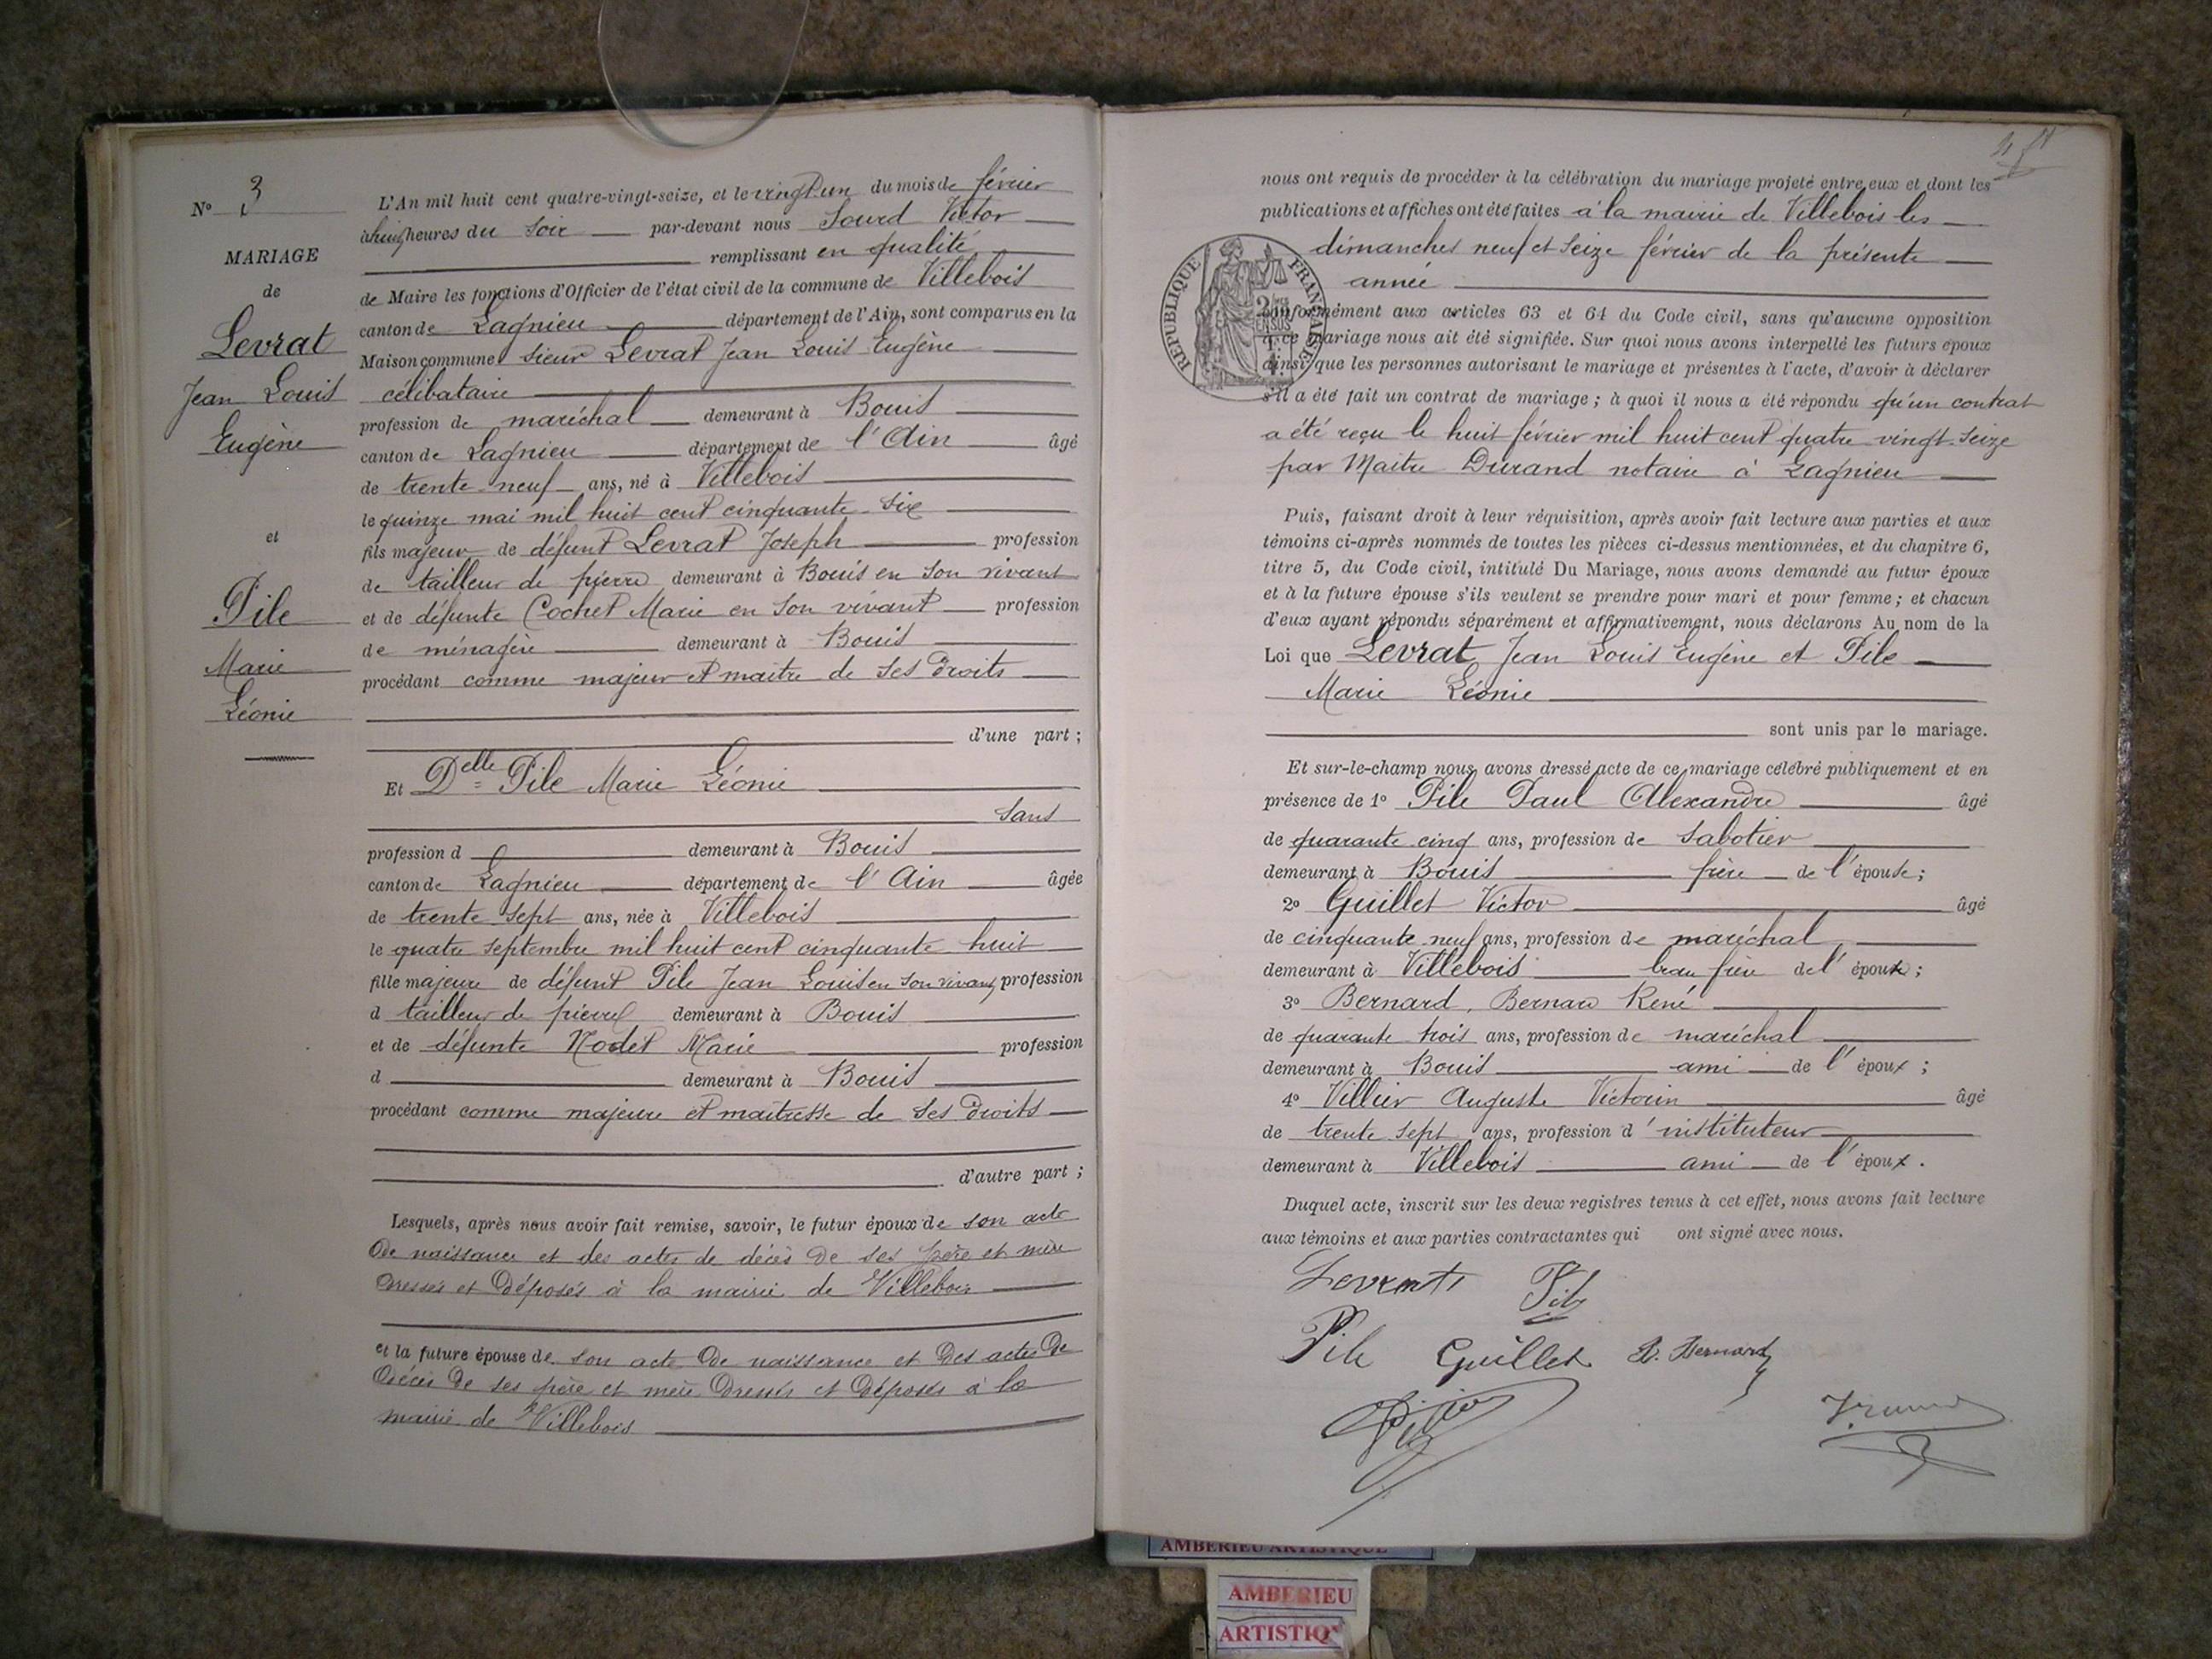 N° 3
MARIAGE
de
Levrat
Jean Louis
Eugène
et
Pile
Marie
Léonie
L'An mil huit cent quatre-vingt-seize, et le vingt un du mois de février
à huit heures du soir par-devant nous Sourd Victor
remplissant en qualité
de Maire les fonctions d'Officier de l'état civil de la commune de Villebois
canton de Lagnieu département de l'Ain, sont comparus en la
Maison commune sieur Levrat Jean Louis Eugène
célibataire
profession de maréchal demeurant à Bouis
canton de Lagnieu département de l'Ain âgé
de trente-neuf ans, né à Villebois
le quinze mai mil huit cent cinquante-six
fils majeur de défunt Levrat Joseph profession
de tailleur de pierre demeurant à Bouis en son vivant
et de défunte Cochet Marie en son vivant profession
de ménagère demeurant à Bouis
procédant comme majeur et maître de ses droits
d'une part ;
Et Delle Pile Marie Léonie
sans
profession d demeurant à Bouis
canton de Lagnieu département de l'Ain âgée
de trente sept ans, née à Villebois
le quatre septembre mil huit cent cinquante huit
fille majeure de défunt Pile Jean Louis en son vivant profession
d tailleur de pierre demeurant à Bouis
et de défunte Nodet Marie profession
d demeurant à Bouis
procédant comme majeure et maîtresse de ses droits
d'autre part ;
Lesquels, après nous avoir fait remise, savoir, le futur époux de son acte
de naissance et des actes de décès de ses père et mère
dressés et déposés à la mairie de Villebois
et la future épouse de son acte de naissance et des actes de
décès de ses père et mère dressés et déposés à la
mairie de Villebois
nous ont requis de procéder à la célébration du mariage projeté entre eux et dont les
publications et affiches ont été faites à la mairie de Villebois les
dimanches neuf et seize février de la présente
année
RÉPUBLIQUE FRANÇAISE
conformément aux articles 63 et 64 du Code civil, sans qu'aucune opposition
à ce mariage nous ait été signifiée. Sur quoi nous avons interpellé les futurs époux
ainsi que les personnes autorisant le mariage et présentes à l'acte, d'avoir à déclarer
s'il a été fait un contrat de mariage ; à quoi il nous a été répondu qu'un contrat
a été reçu le huit février mil huit cent quatre vingt-seize
par Maitre Durand notaire à Lagnieu
Puis, faisant droit à leur réquisition, après avoir fait lecture aux parties et aux
témoins ci-après nommés de toutes les pièces ci-dessus mentionnées, et du chapitre 6,
titre 5, du Code civil, intitulé Du Mariage, nous avons demandé au futur époux
et à la future épouse s'ils veulent se prendre pour mari et pour femme ; et chacun
d'eux ayant répondu séparément et affirmativement, nous déclarons Au nom de la
Loi que Levrat Jean Louis Eugène et Pile
Marie Léonie
sont unis par le mariage.
Et sur-le-champ nous avons dressé acte de ce mariage célébré publiquement et en
présence de 1° Pile Paul Alexandre âgé
de quarante cinq ans, profession de sabotier
demeurant à Bouis frère de l'épouse ;
2° Guillet Victor âgé
de cinquante neuf ans, profession de maréchal
demeurant à Villebois beau frère de l'épouse ;
3° Bernard, Bernard René
de quarante trois ans, profession de maréchal
demeurant à Bouis ami de l'époux ;
4° Villier Auguste Victorin âgé
de trente sept ans, profession d'instituteur
demeurant à Villebois ami de l'époux.
Duquel acte, inscrit sur les deux registres tenus à cet effet, nous avons fait lecture
aux témoins et aux parties contractantes qui ont signé avec nous.
Levrat Pile
Pile Guillet R. Bernard
AMBERIEU ARTISTIQUE
AMBERIEU
ARTISTIQ